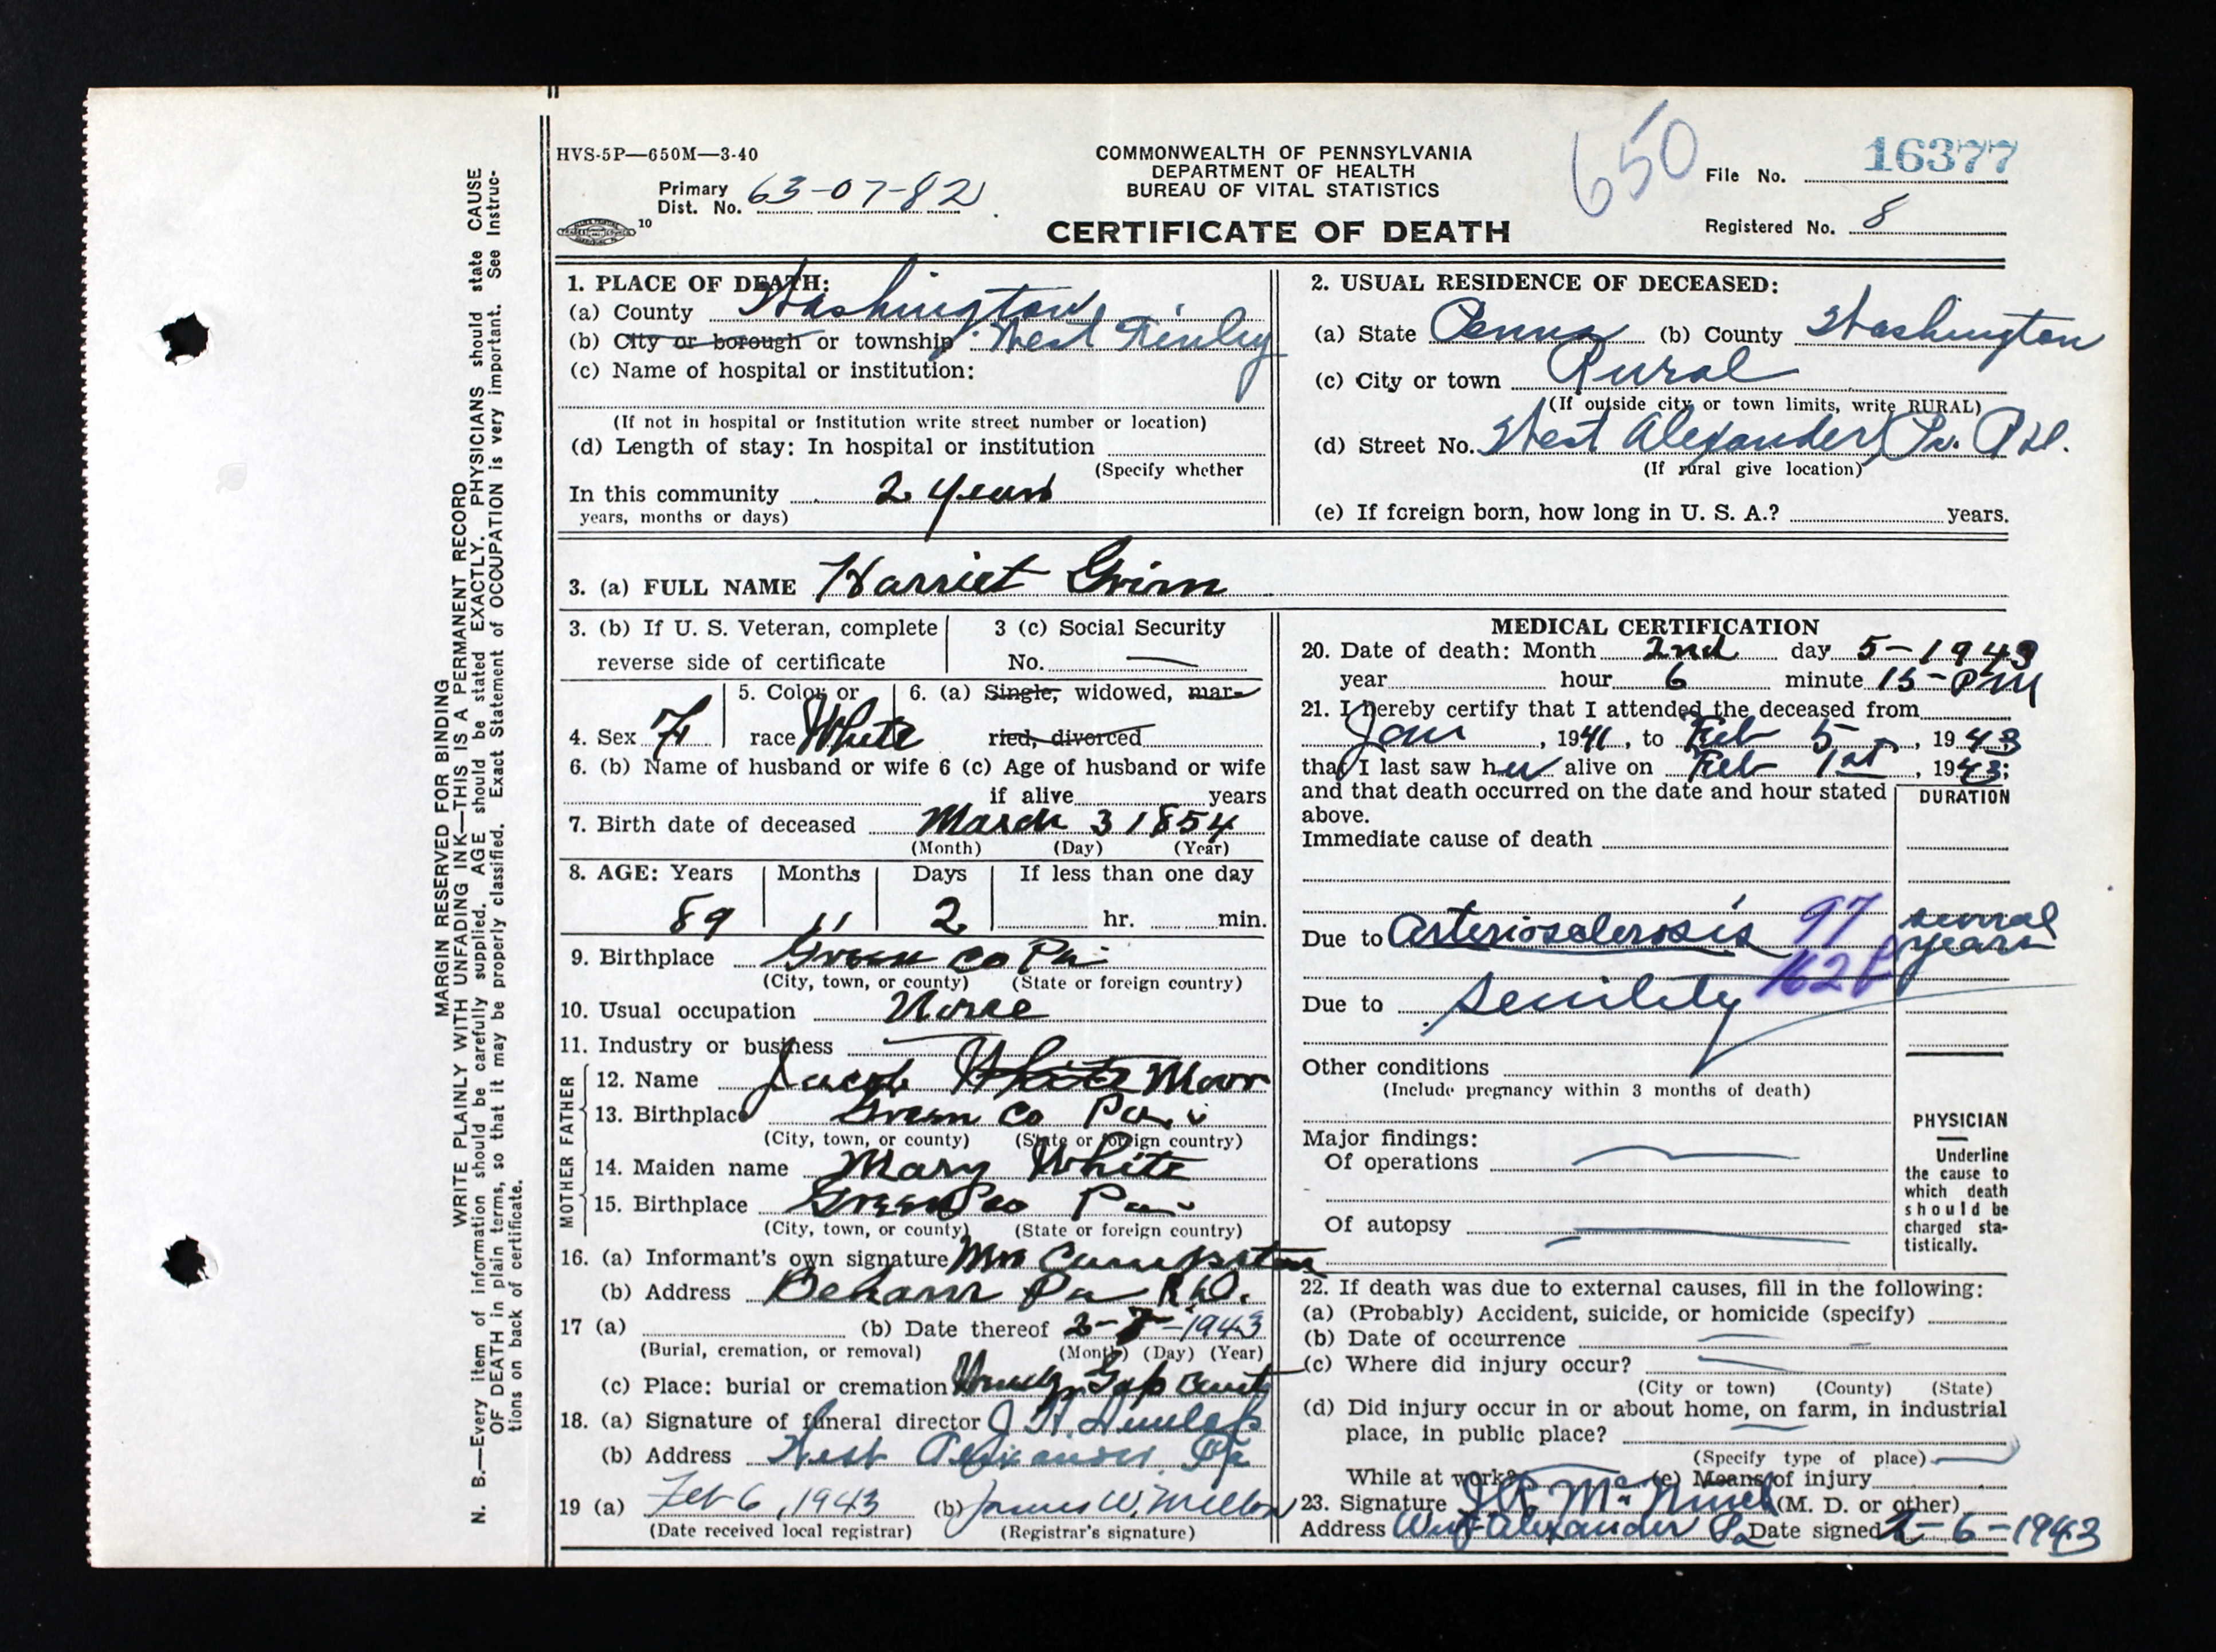 MARGIN RESERVED FOR BINDING
WRITE PLAINLY WITH UNFADING INK—THIS IS A PERMANENT RECORD
N. B.—Every item of information should be carefully supplied. AGE should be stated EXACTLY. PHYSICIANS should state CAUSE
OF DEATH in plain terms, so that it may be properly classified. Exact Statement of OCCUPATION is very important. See Instruc-
tions on back of certificate.
HVS-5P—650M—3-40
Primary
Dist. No. 63-07-82
10
COMMONWEALTH OF PENNSYLVANIA
DEPARTMENT OF HEALTH
BUREAU OF VITAL STATISTICS
CERTIFICATE OF DEATH
650
File No. 16377
Registered No. 8
1. PLACE OF DEATH:
(a) County Washington
(b) City or borough or township West Finley
(c) Name of hospital or institution:
(If not in hospital or institution write street number or location)
(d) Length of stay: In hospital or institution
(Specify whether
In this community 2 years
years, months or days)
2. USUAL RESIDENCE OF DECEASED:
(a) State Penna (b) County Washington
(c) City or town Rural
(If outside city or town limits, write RURAL)
(d) Street No. West Alexander Pa.
(If rural give location)
(e) If foreign born, how long in U. S. A.? years.
3. (a) FULL NAME Harriet Grim
3. (b) If U. S. Veteran, complete
reverse side of certificate
3 (c) Social Security
No. —
4. Sex F
5. Color or
race White
6. (a) Single, widowed, mar-
ried, divorced
6. (b) Name of husband or wife 6 (c) Age of husband or wife
if alive years
7. Birth date of deceased March 3 1854
(Month) (Day) (Year)
8. AGE: Years Months Days If less than one day
89 11 2 hr. min.
9. Birthplace Green Co Pa
(City, town, or county) (State or foreign country)
10. Usual occupation None
11. Industry or business
FATHER
12. Name Jacob White Moor
13. Birthplace Green Co Pa
(City, town, or county) (State or foreign country)
MOTHER
14. Maiden name Mary White
15. Birthplace Green Co Pa
(City, town, or county) (State or foreign country)
16. (a) Informant's own signature
(b) Address Pa
17 (a) (b) Date thereof 2-7-1943
(Burial, cremation, or removal) (Month) (Day) (Year)
(c) Place: burial or cremation
18. (a) Signature of funeral director J H Dunlap
(b) Address West Alexander Pa
19 (a) Feb 6, 1943 (b) James W. Mellon
(Date received local registrar) (Registrar's signature)
MEDICAL CERTIFICATION
20. Date of death: Month 2nd day 5-1943
year hour 6 minute 15-PM
21. I hereby certify that I attended the deceased from
Jan, 1941, to Feb 5, 1943
that I last saw her alive on Feb 1st, 1943;
and that death occurred on the date and hour stated
above.
DURATION
Immediate cause of death
Due to Arteriosclerosis 97 several
years
162
Due to senility
Other conditions
(Include pregnancy within 3 months of death)
Major findings:
Of operations
Of autopsy
PHYSICIAN
Underline
the cause to
which death
should be
charged sta-
tistically.
22. If death was due to external causes, fill in the following:
(a) (Probably) Accident, suicide, or homicide (specify)
(b) Date of occurrence
(c) Where did injury occur?
(City or town) (County) (State)
(d) Did injury occur in or about home, on farm, in industrial
place, in public place?
(Specify type of place)
While at work? (e) Means of injury
23. Signature (M. D. or other)
Address West Alexander Pa Date signed 2-6-1943